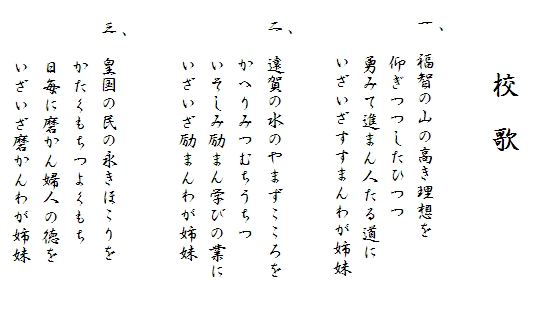 校歌
一、
福智の山の高き理想を
仰ぎつつしたひつつ
勇みて進まん人たる道に
いざいざすすまんわが姉妹
二、
遠賀の水のやまずこころを
かへりみつむちうちつ
いそしみ励まん学びの業に
いざいざ励まんわが姉妹
三、
皇国の民の永きほこりを
かたくもちつよくもち
日毎に磨かん婦人の徳を
いざいざ磨かんわが姉妹